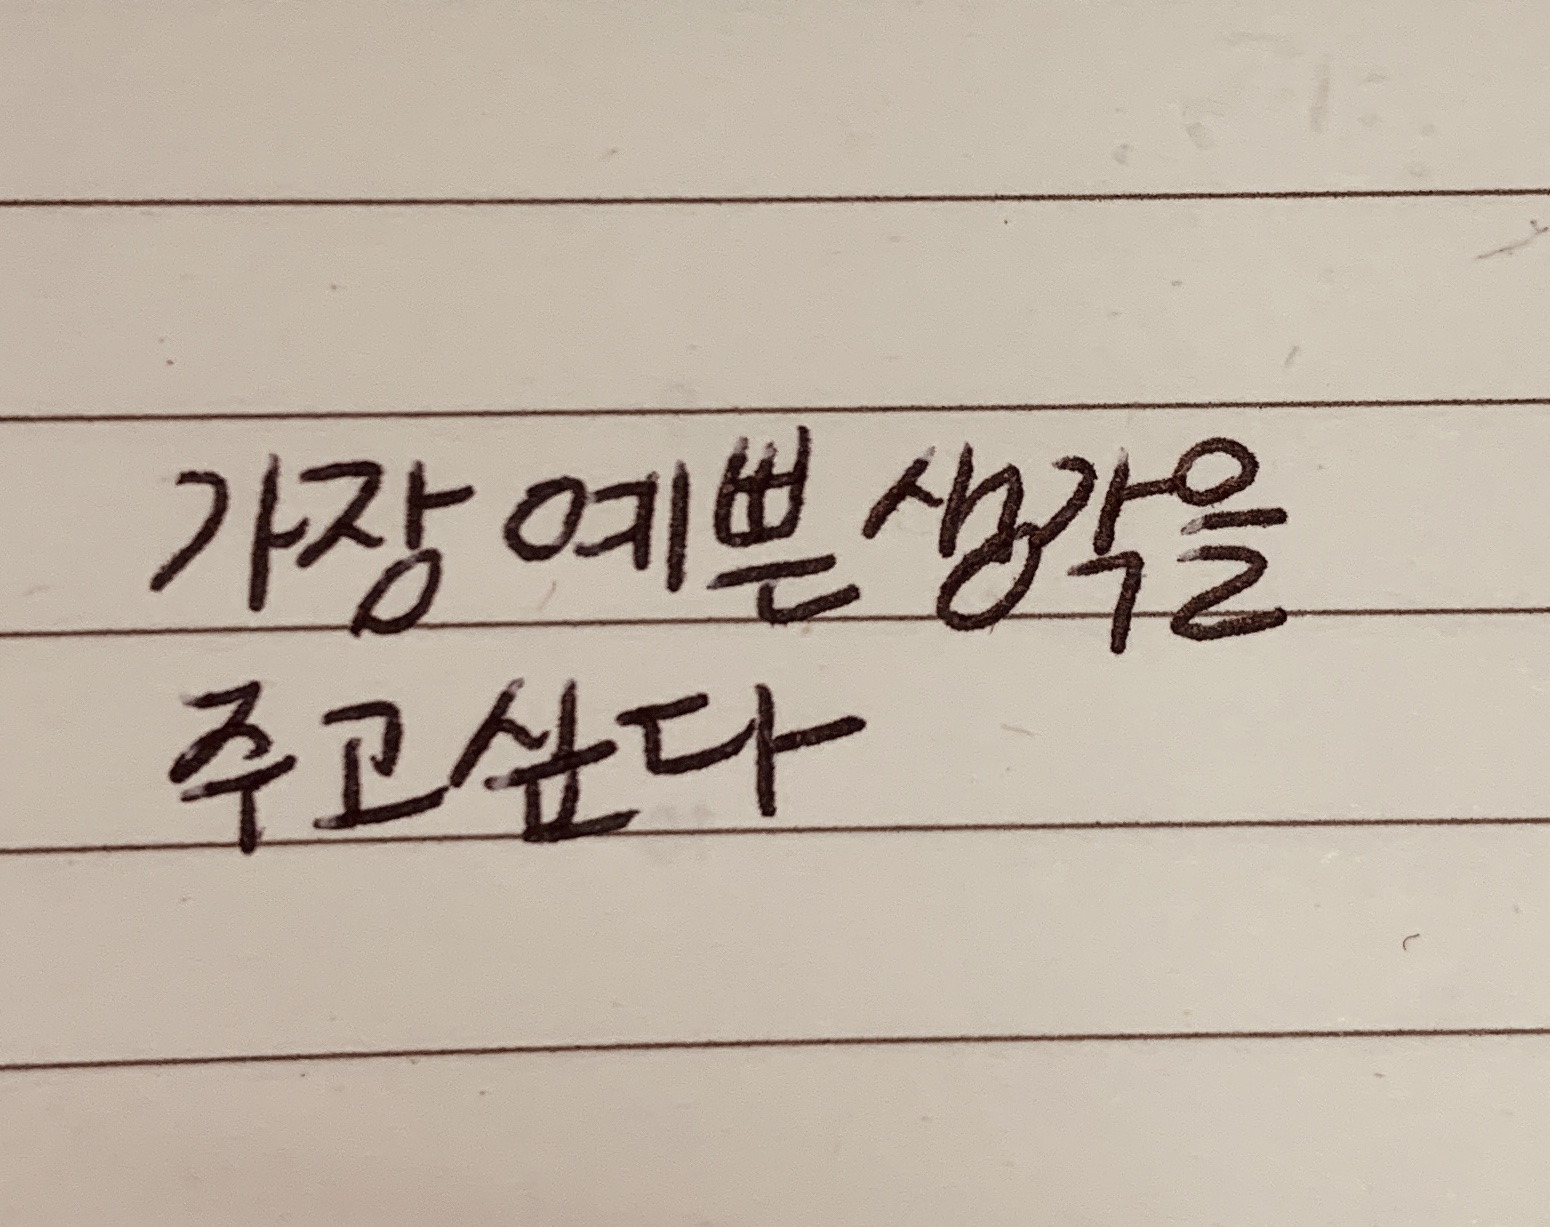 가장 예쁜 생각을
주고싶다